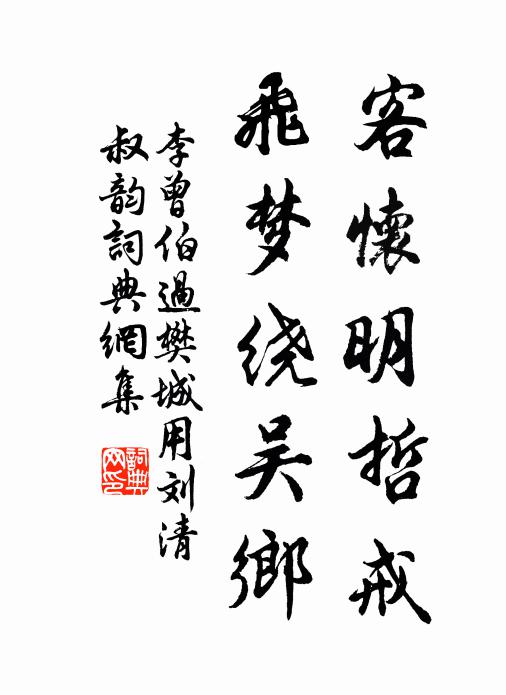 客懷明哲戒
飛梦绕吴鄉
李曾伯過樊城用刘清
叔韵詞典網集
詞典网印